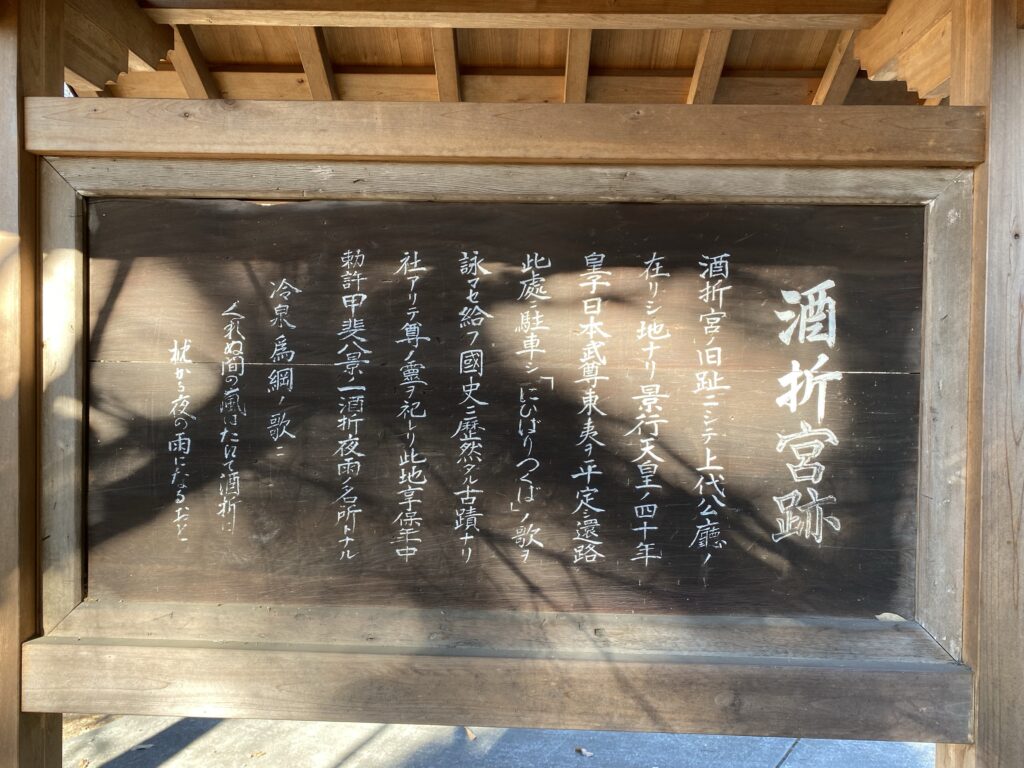 酒折宮跡
酒折宮ノ旧趾ニシテ上代公廳ノ
在リシ地ナリ景行天皇ノ四十年
皇子日本武尊東夷ヲ平定シ還路
此處ニ駐車シ「にひばりつくば」ノ歌ヲ
詠マセ給フ國史ニ歴然タル古蹟ナリ
社アリテ尊ノ靈ヲ祀レリ此地享保年中
勅許甲斐八景ノ一酒折夜雨ノ名所トナル
冷泉爲綱ノ歌ニ
くれぬ間の嵐はたえて酒折に
枕かる夜の雨になるおと